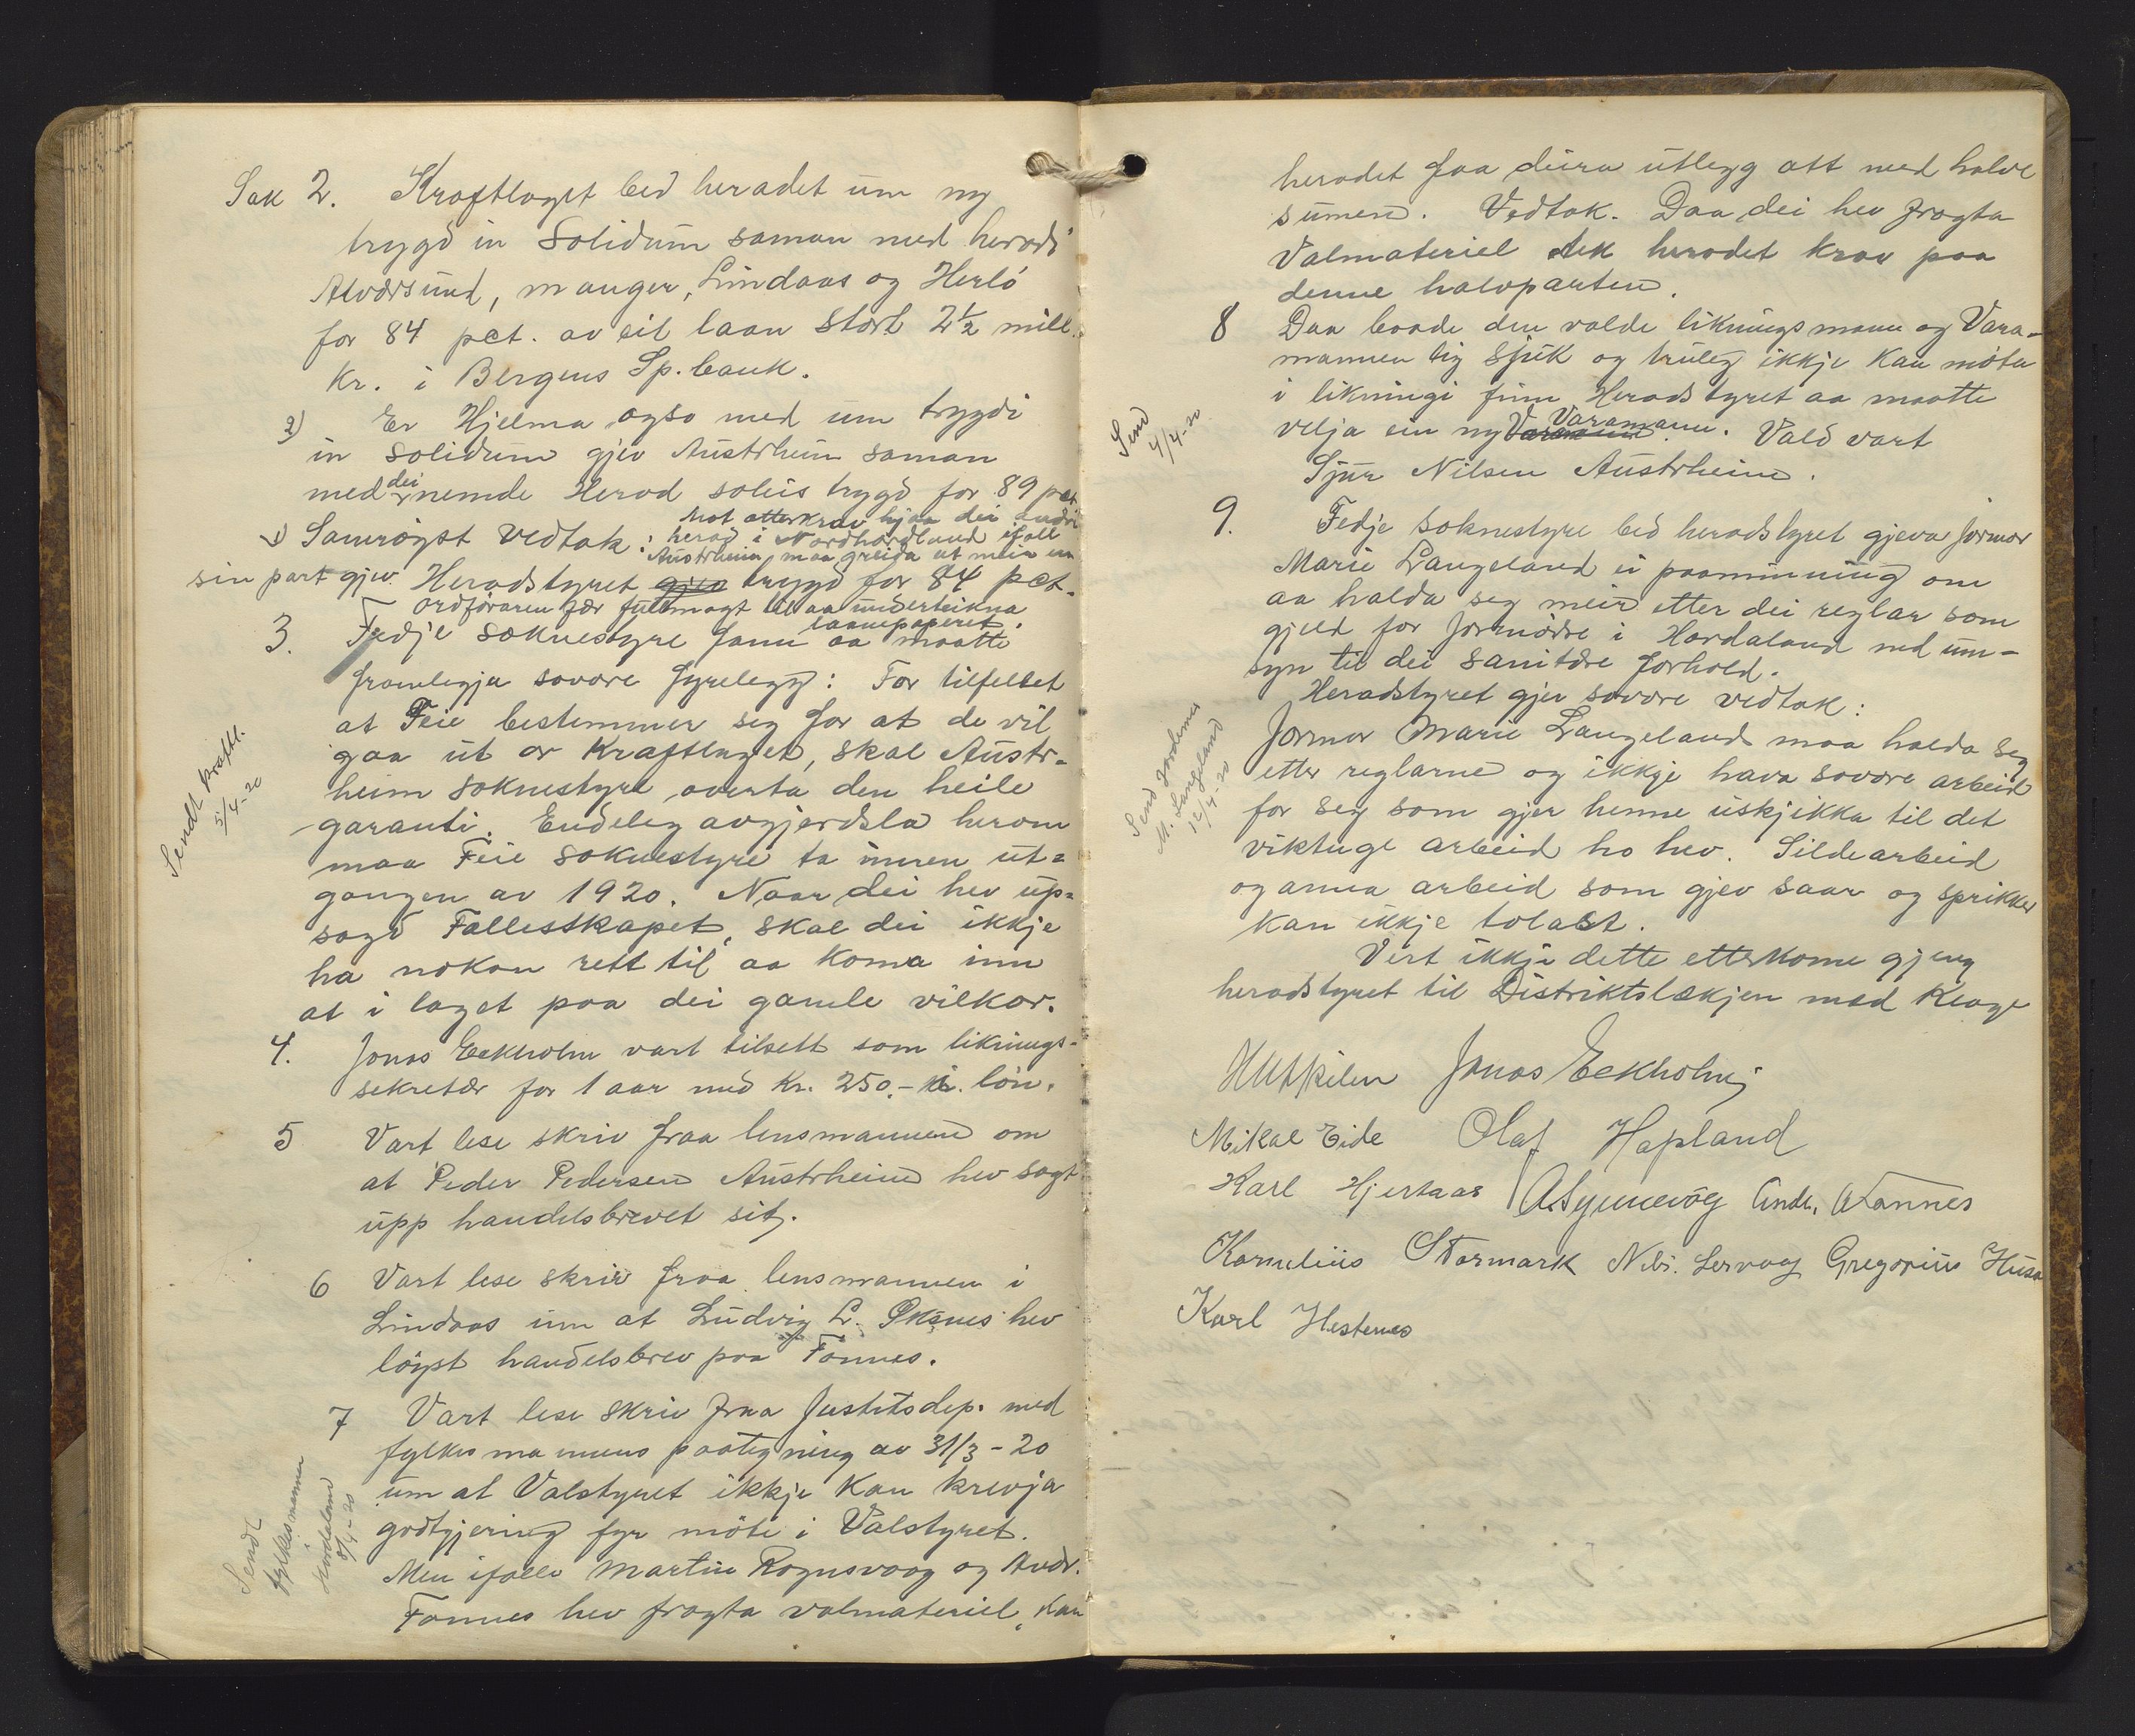 Sak 2. Kraftlaget bed heradet um ny
trygd in Solidum saman med heradi
Alversund, Manger, Lindaas og Herlö
for 84 pct. av eit laan stort 2½ mill.
kr. i Bergens Sp.bank.
2) Er Hjelma ogso med um trygdi
in solidum gjev Austrheim saman
med dei nemde Herad soleis trygd for 89 pct
mot atterkrav hjaa dei andre
1) Samröyst Vedtak: herad i Nordhordland ifall
Austrheim maa greida ut meir enn
sin part gjev Heradstyret gjev trygd for 84 pct.
Ordföraren fær fullmagt til aa underteikna
laanepapiret.
3. Fedje soknestyre fann aa maatte
framlegja sovore fyrelegg: For tilfellet
at Feie bestemmer seg for at de vil
gaa ut or Kraftlaget, skal Austr-
heim soknestyre overta den heile
garanti. Endeleg avgjerdsla herom
maa Feie soknestyre ta innen ut-
gangen av 1920. Naar dei hev up-
sagd Fallesskapet, skal dei ikkje
ha nokon rett til aa koma inn
at i laget paa dei gamle vilkor.
Sendt kraftl.
5/4-20
4. Jonas Eckholm vart tilsett som liknings-
sekretær for 1 aar med Kr. 250.- i lön.
5 Vart lese skriv fraa lensmannen om
at Peder Pedersen Austrheim hev sagt
upp handelsbrevet sit.
6 Vart lese skriv fraa lensmannen i
Lindaas um at Ludvig L. Oksnes hev
löyst handelsbrev paa Fonnes.
7 Vart lese skriv fraa Justitsdep. med
fylkesmannens paategning av 31/3-20
um at Valstyret ikkje kan krevja
godtgjering fyr möte i Valstyret.
Men ifall Martin Rognsvaag og Andr.
Fonnes hev fragta valmateriel, kan
Sendt
fylkesmannen
Hordaland
8/4-20
heradet faa deira utlegg att med halve
sumen. Vedtak. Daa dei hev fragta
Valmateriel tek heradet krav paa
denne halvparten.
8 Daa baade den valde likningsmann og Vara-
mannen lig sjuk og truleg ikkje kan möta
i likningi finn Heradstyret aa maatte
velja ein ny Varamann. Vald vart
Sjur Nilsen Austrheim.
Send
4/4-20
9. Fedje soknestyre bed heradstyret gjeva jormor
Marie Langeland ei paaminning om
aa halda seg meir etter dei reglar som
gjeld for jormödre i Hordaland med um-
syn til dei sanitære forhold.
Heradstyret gjev sovore vedtak:
Jormor Marie Langeland maa halda seg
etter reglarne og ikkje hava sovore arbeid
for seg som gjer henne uskjikka til det
viktuge arbeid ho hev. Sildearbeid
og anna arbeid som gjev saar og sprikker
kan ikkje tolast.
Vert ikkje dette etterkome gjeng
heradstyret til Distriktslækjen med klage
Send Jordmor
M. Langeland
12/4-20
Jonas Eckholm
Mikal Eide Olaf Hopland
Karl Hjertaas A. Synnevåg Andr. Fonnes
Kornelius Stormark Nils. Lervaag Gregorius Husa
Karl Hestenes